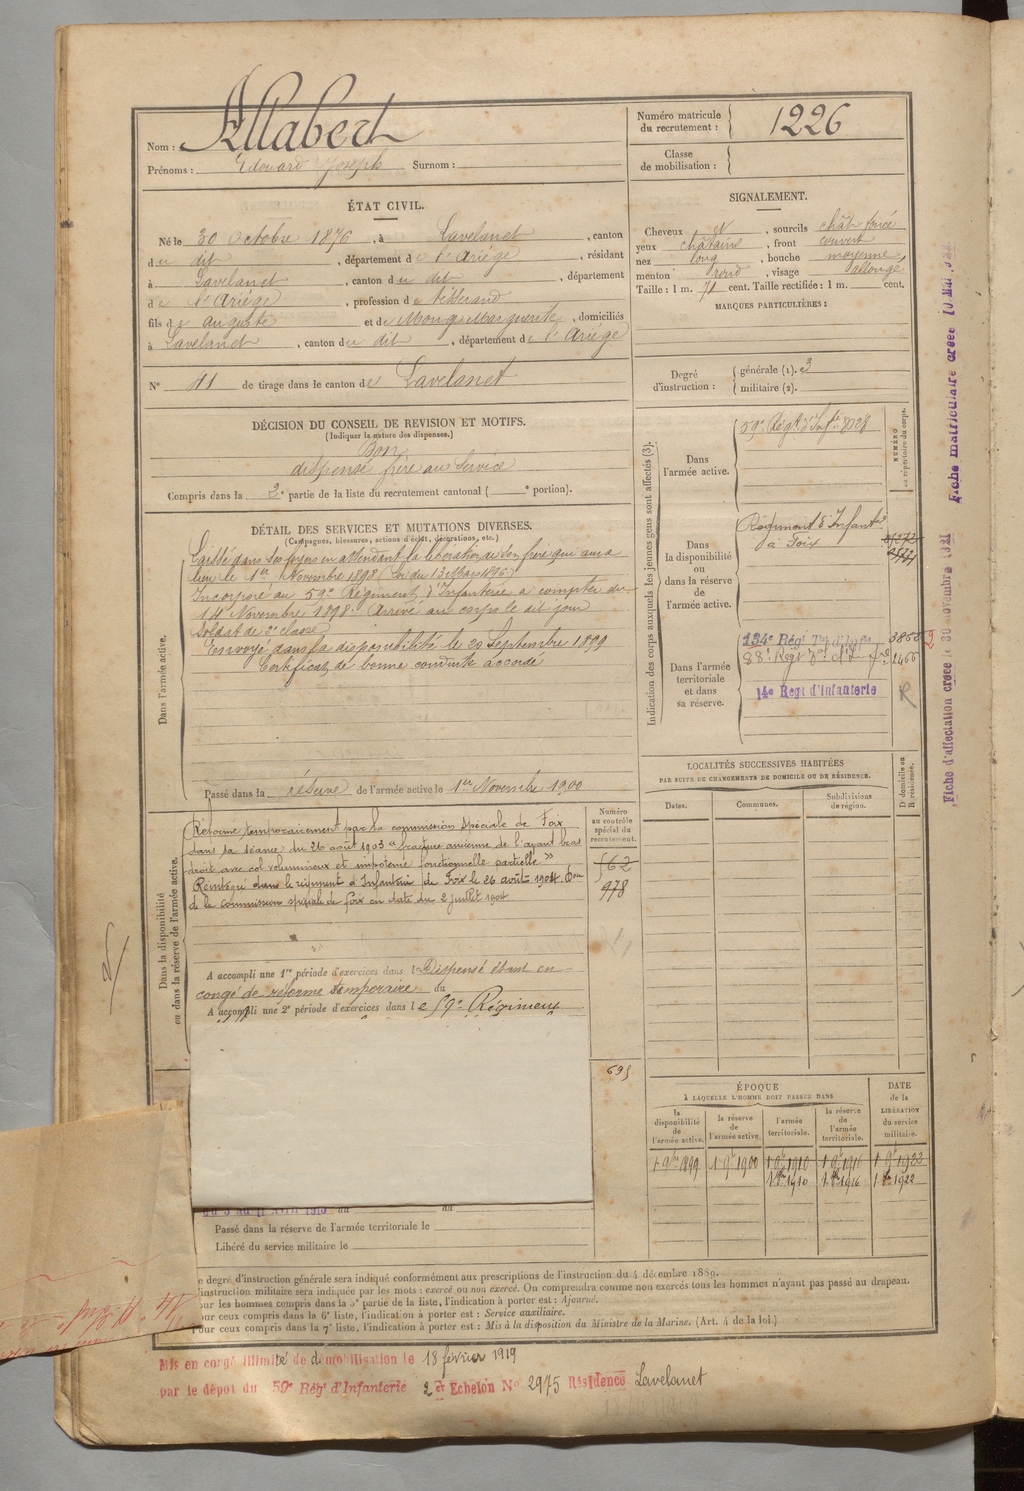 Nom : Allabert
Prénoms : Edouard Joseph Surnom :
Numéro matricule du recrutement : 1226
Classe de mobilisation :
ÉTAT CIVIL.
Né le 30 Octobre 1876, à Lavelanet, canton
du dit, département de l'Ariége, résidant
à Lavelanet, canton du dit, département
de l'Ariége, profession de tisserand
fils de Auguste et de Mouys Marguerite, domiciliés
à Lavelanet, canton du dit, département de l'Ariége
N° 41 de tirage dans le canton de Lavelanet
SIGNALEMENT.
Cheveux et, sourcils chât foncé
yeux châtains, front couvert
nez long, bouche moyenne,
menton rond, visage allongé,
Taille : 1 m. 71 cent. Taille rectifiée : 1 m. cent.
MARQUES PARTICULIÈRES :
Degré d'instruction : générale (1). 3
militaire (2).
DÉCISION DU CONSEIL DE REVISION ET MOTIFS.
(Indiquer la nature des dispenses.)
Bon
dispensé frère au service
Compris dans la 2e partie de la liste du recrutement cantonal ( e portion).
DÉTAIL DES SERVICES ET MUTATIONS DIVERSES.
(Campagnes, blessures, actions d'éclat, décorations, etc.)
Dans l'armée active.
Laissé dans ses foyers en attendant la libération de son frère qui aura
lieu le 1er Novembre 1898 (Loi du 13 Mars 1896)
Incorporé au 59e Régiment d'Infanterie à compter du
14 Novembre 1898. Arrivé au corps le dit jour
Soldat de 2e classe
Envoyé dans la disponibilité le 20 Septembre 1899
Certificat de bonne conduite accordé
Passé dans la réserve de l'armée active le 1er Novembre 1900
Indication des corps auxquels les jeunes gens sont affectés (3).
NUMÉRO au répertoire du corps.
Dans l'armée active.
59e Régt d'Infie 8128
Dans la disponibilité ou dans la réserve de l'armée active.
Régiment d'Infanterie
à Foix
Dans l'armée territoriale et dans sa réserve.
134e Régt Ter d'Infie 3850 2
88e Régt 2466
14e Regt d'Infanterie R
LOCALITÉS SUCCESSIVES HABITÉES
PAR SUITE DE CHANGEMENTS DE DOMICILE OU DE RÉSIDENCE.
Dates. Communes. Subdivisions de région. D domicile ou R résidence.
Dans la disponibilité ou dans la réserve de l'armée active.
Réformé temporairement par la commission spéciale de Foix
dans sa séance du 26 août 1903 "fracture ancienne de l'avant bras
droit avec col volumineux et impotence fonctionnelle partielle"
Réintégré dans le régiment d'Infanterie de Foix le 26 août 1904. Don
de la commission spéciale de foix en date du 2 juillet 1904
Numéro au contrôle spécial du recrutement.
562
478
695
A accompli une 1re période d'exercices dans l Dispensé étant en
congé de réforme temporaire du
A accompli une 2e période d'exercices dans le 59e Régiment
du 5 au 11 Avril 1913 au
Passé dans la réserve de l'armée territoriale le
Libéré du service militaire le
ÉPOQUE
À LAQUELLE L'HOMME DOIT PASSER DANS
la disponibilité de l'armée active. la réserve de l'armée active. l'armée territoriale. la réserve de l'armée territoriale.
DATE de la LIBÉRATION du service militaire.
1 9bre 1899 1 9bre 1900 1 9bre 1910 1 9bre 1916 1 9bre 1922
1 8bre 1910 1 8bre 1916 1 8bre 1922
e degré d'instruction générale sera indiqué conformément aux prescriptions de l'instruction du 4 décembre 1889.
'instruction militaire sera indiquée par les mots : exercé ou non exercé. On comprendra comme non exercés tous les hommes n'ayant pas passé au drapeau.
our les hommes compris dans la 5e partie de la liste, l'indication à porter est : Ajourné.
our ceux compris dans la 6e liste, l'indication à porter est : Service auxiliaire.
Pour ceux compris dans la 7e liste, l'indication à porter est : Mis à la disposition du Ministre de la Marine. (Art. 4 de la loi.)
Mis en congé illimité de démobilisation le 18 février 1919
par le dépôt du 59e Régt d'Infanterie 2e Echelon No 2975 Résidence Lavelanet
Fiche d'affectation créée le 30 novembre
Fiche matriculaire créée 10 Mai